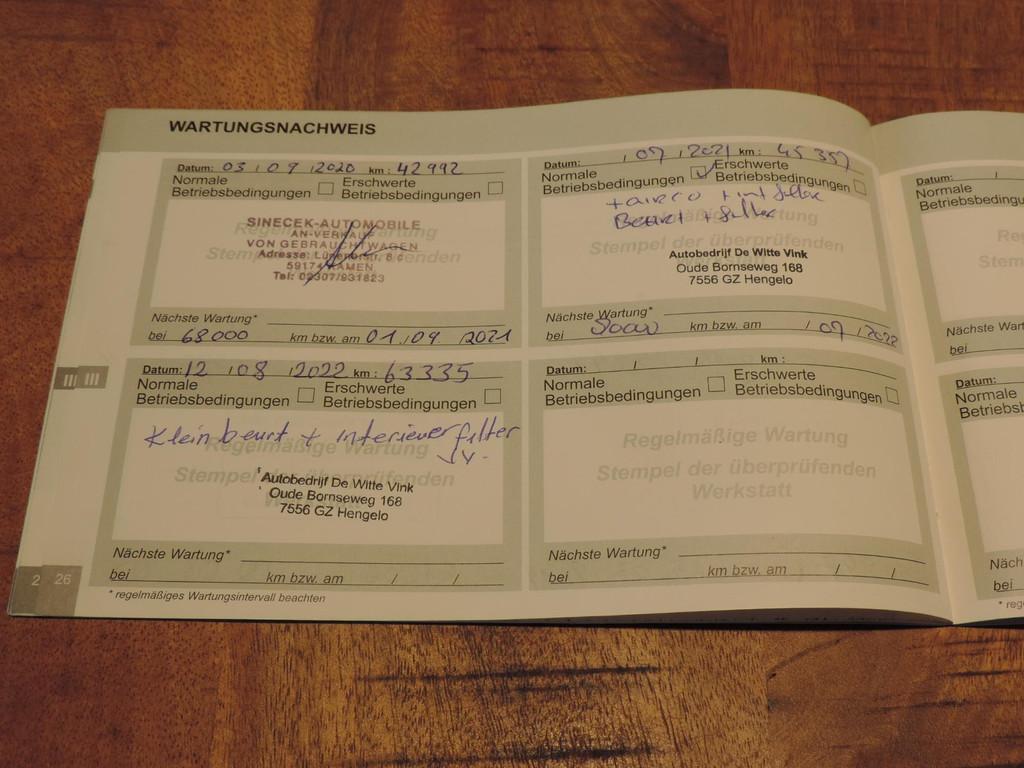 WARTUNGSNACHWEIS
Datum: 03 / 09 / 2020 km: 42992
Normale Betriebsbedingungen
Erschwerte Betriebsbedingungen
SINECEK-AUTOMOBILE
AN-VERKAUF
VON GEBRAUCHTWAGEN
Adresse: Lünenerstr. 8 c
59174 KAMEN
Tel: 02307/931823
Nächste Wartung*
bei 68000 km bzw. am 01 / 09 / 2021
Datum: / 07 / 2021 km: 45357
Normale Betriebsbedingungen
Erschwerte Betriebsbedingungen
+ airco + int filter
Beurt + filter
Stempel der überprüfenden
Autobedrijf De Witte Vink
Oude Bornseweg 168
7556 GZ Hengelo
Nächste Wartung*
bei km bzw. am / 07 / 2022
Datum: 12 / 08 / 2022 km: 63335
Normale Betriebsbedingungen
Erschwerte Betriebsbedingungen
Klein beurt + interieur filter
Regelmäßige Wartung
Stempel der überprüfenden
Autobedrijf De Witte Vink
Oude Bornseweg 168
7556 GZ Hengelo
Nächste Wartung*
bei km bzw. am / /
Datum: / / km:
Normale Betriebsbedingungen
Erschwerte Betriebsbedingungen
Regelmäßige Wartung
Stempel der überprüfenden
Werkstatt
Nächste Wartung*
bei km bzw. am / /
* regelmäßiges Wartungsintervall beachten
2 26
Datum: /
Normale
Nächste Wart
bei
Datum:
Normale
bei